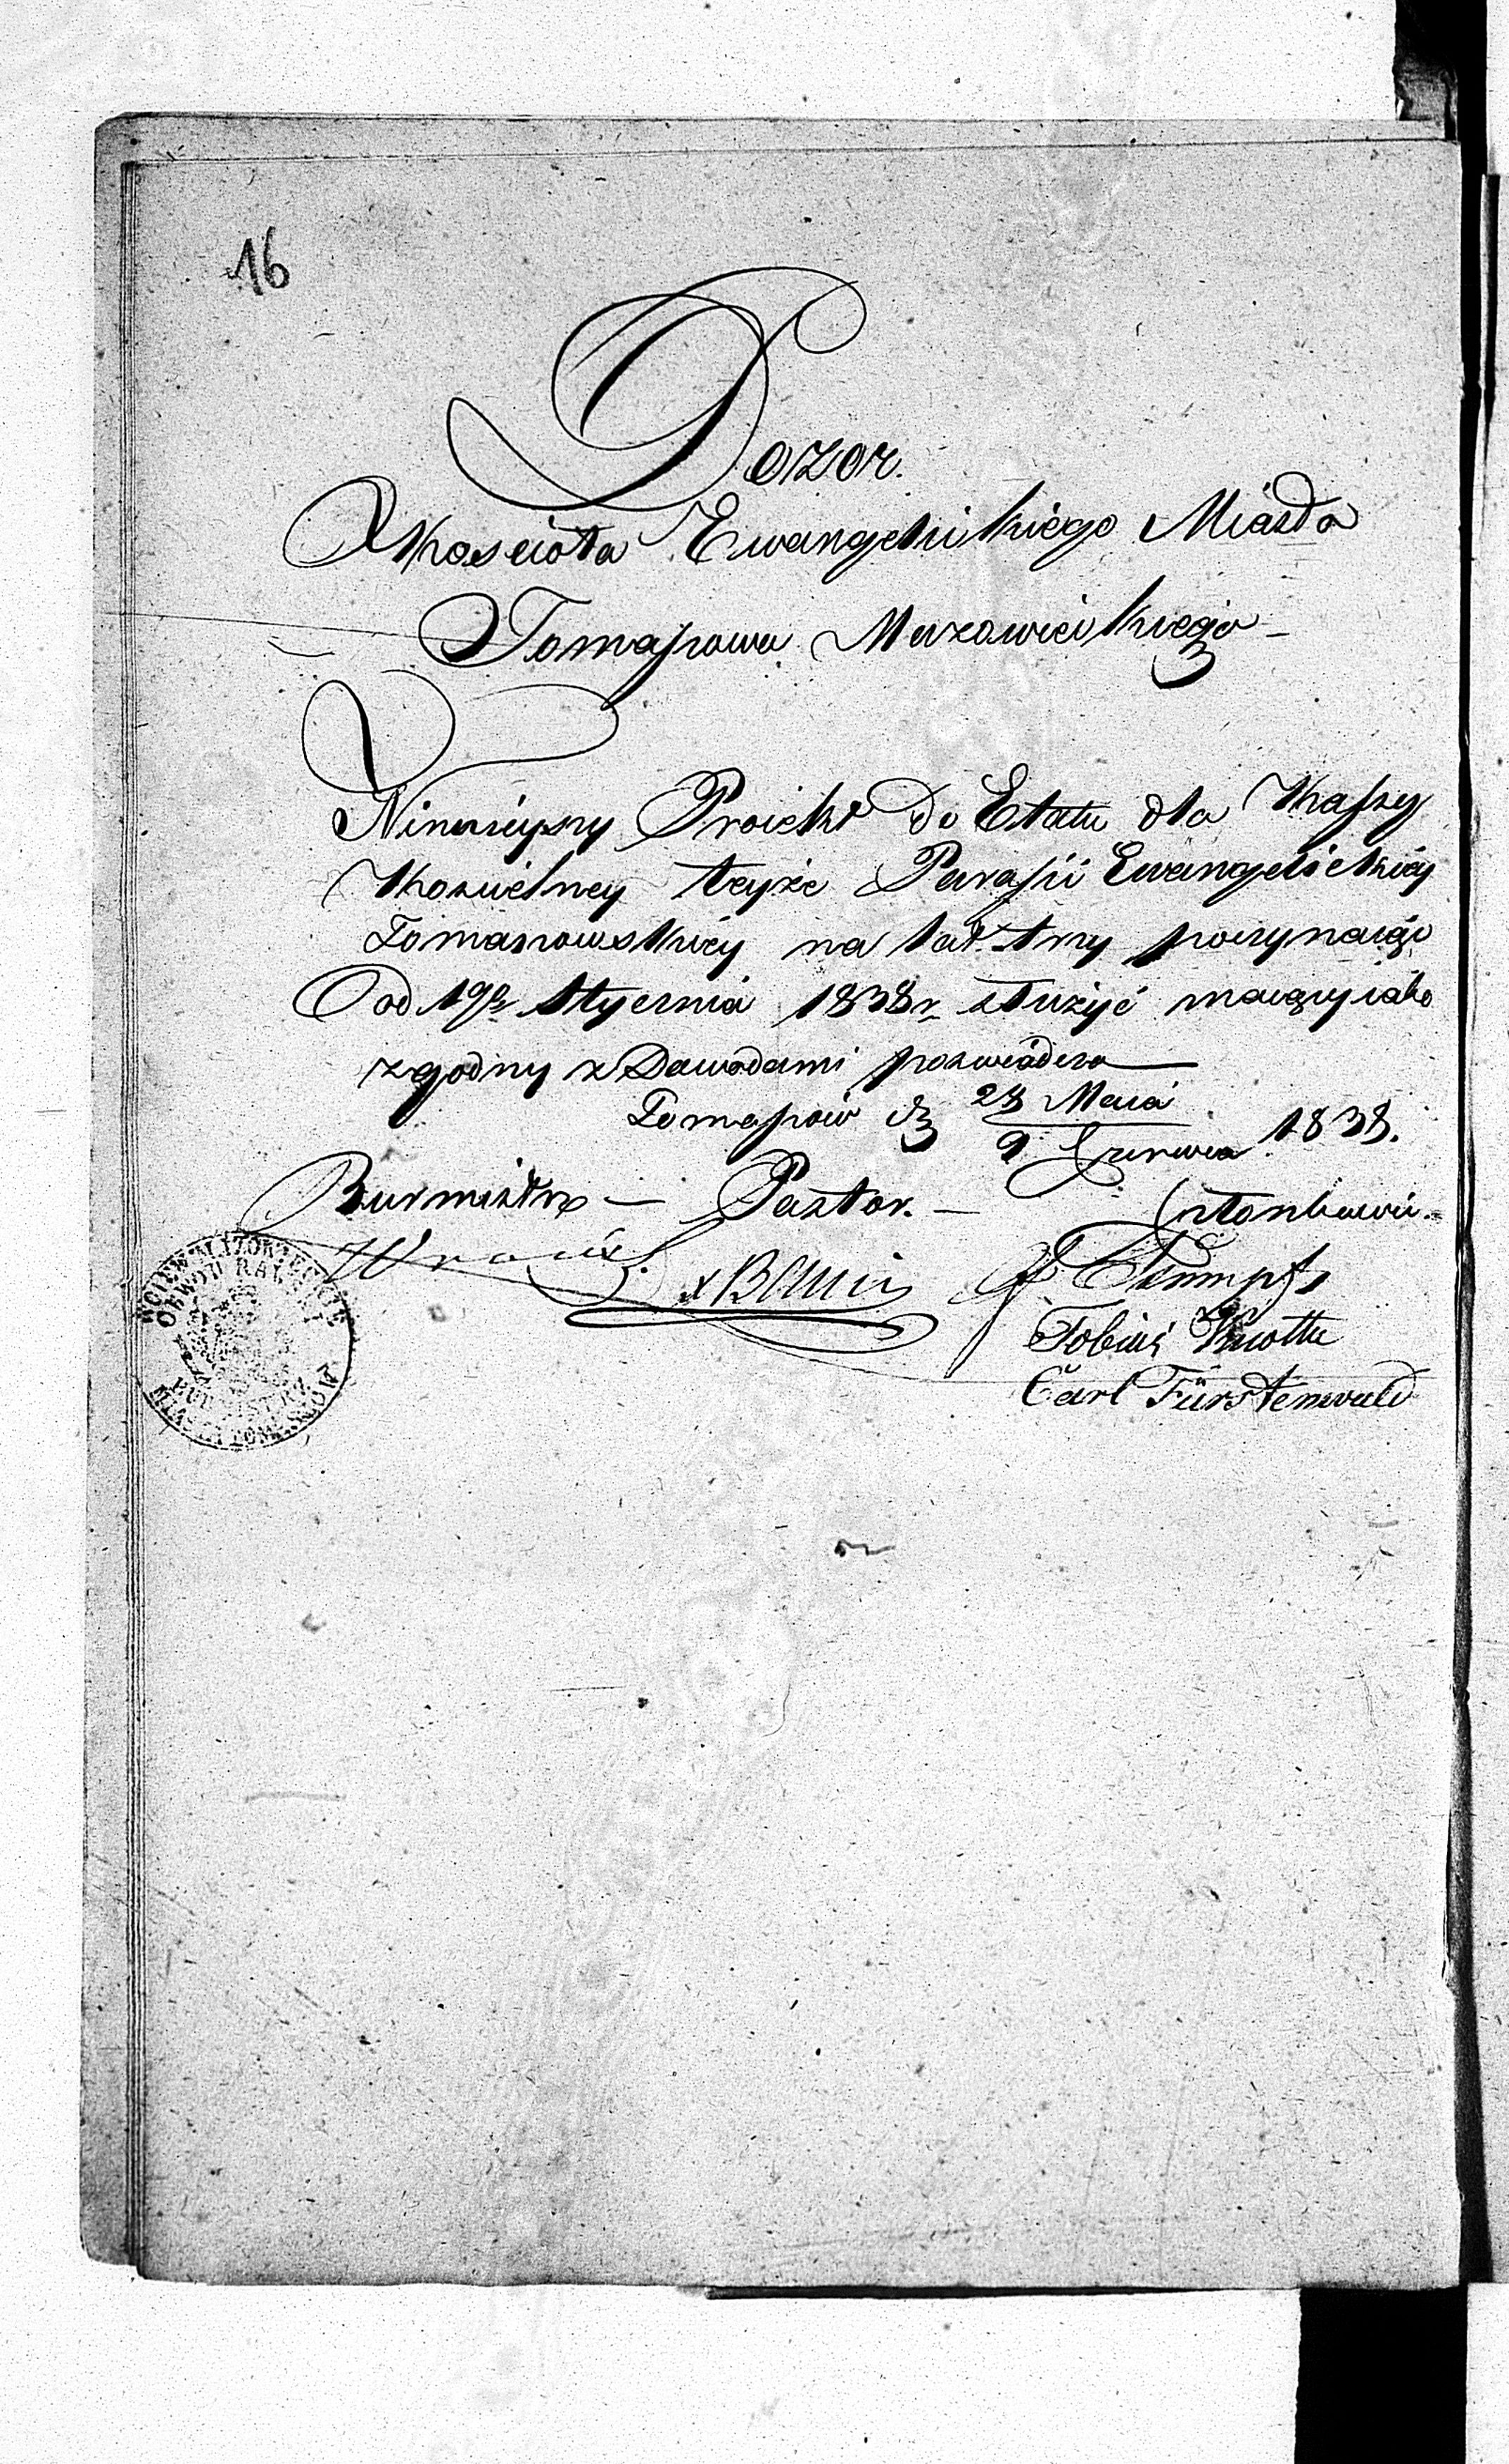 16
Dozor.
Kosciota Ewangelickiego Miasta
Tomaszowa Mazowieckiego
Ninieyszy Proiekt do Etatu dla Kaszy
Koscielney teyże Parafii Ewangelickiéy
Tomaszowskiéy na lat trzy poczynaiąc
Od 1go Stycznia 1838r. służyć maiący iako
zgodny z Dowodami poswiadcza
Tomaszow d 28 Maia / 9 Czerwca 1838.
Burmistrz — Pastor. — Członkowie.
Tobias Knothe
Carl Fürstenwald
WOIEWÓDZ. MAZOWIECKIE
OBWÓD RAWSKI
BURMISTRZ
MIASTA TOMASZOW